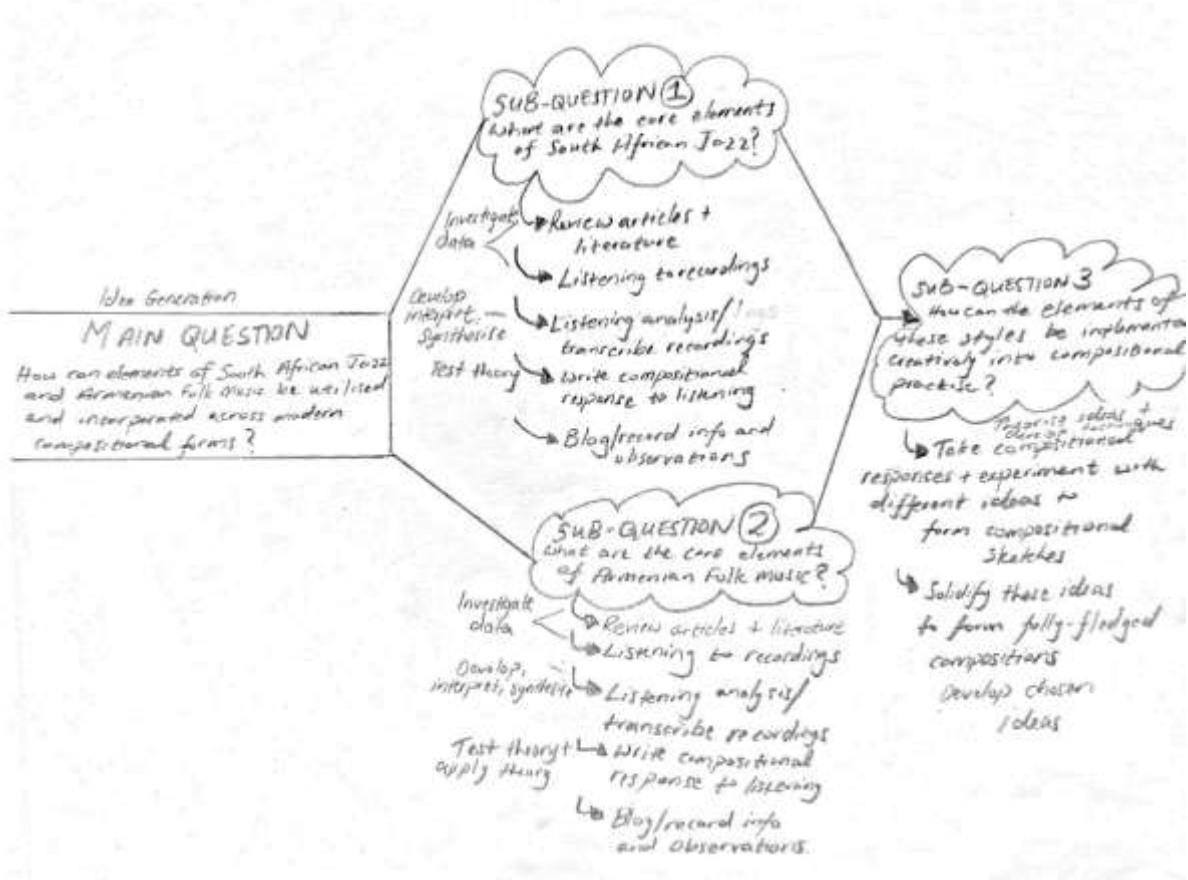 Idea Generation
MAIN QUESTION
How can elements of South African Jazz
and Armenian Folk Music be utilised
and incorporated across modern
compositional forms?
SUB-QUESTION 1
What are the core elements
of South African Jazz?
Investigate
data
Review articles +
literature
Listening to recordings
Develop
interpret,
Synthesise
Listening analysis/
transcribe recordings
Test theory
Write compositional
response to listening
Blog/record info and
observations
SUB-QUESTION 2
What are the core elements
of Armenian Folk music?
Investigate
data
Review articles + literature
Listening to recordings
Develop,
interpret, synthesise
Listening analysis/
transcribe recordings
Test theory +
apply theory
Write compositional
response to listening
Blog/record info
and observations.
SUB-QUESTION 3
How can the elements of
these styles be implemented
creatively into compositional
practise?
ideas +
Take compositional
responses + experiment with
different ideas to
form compositional
Sketches
Solidify these ideas
to form fully-fledged
compositions
Develop chosen
ideas